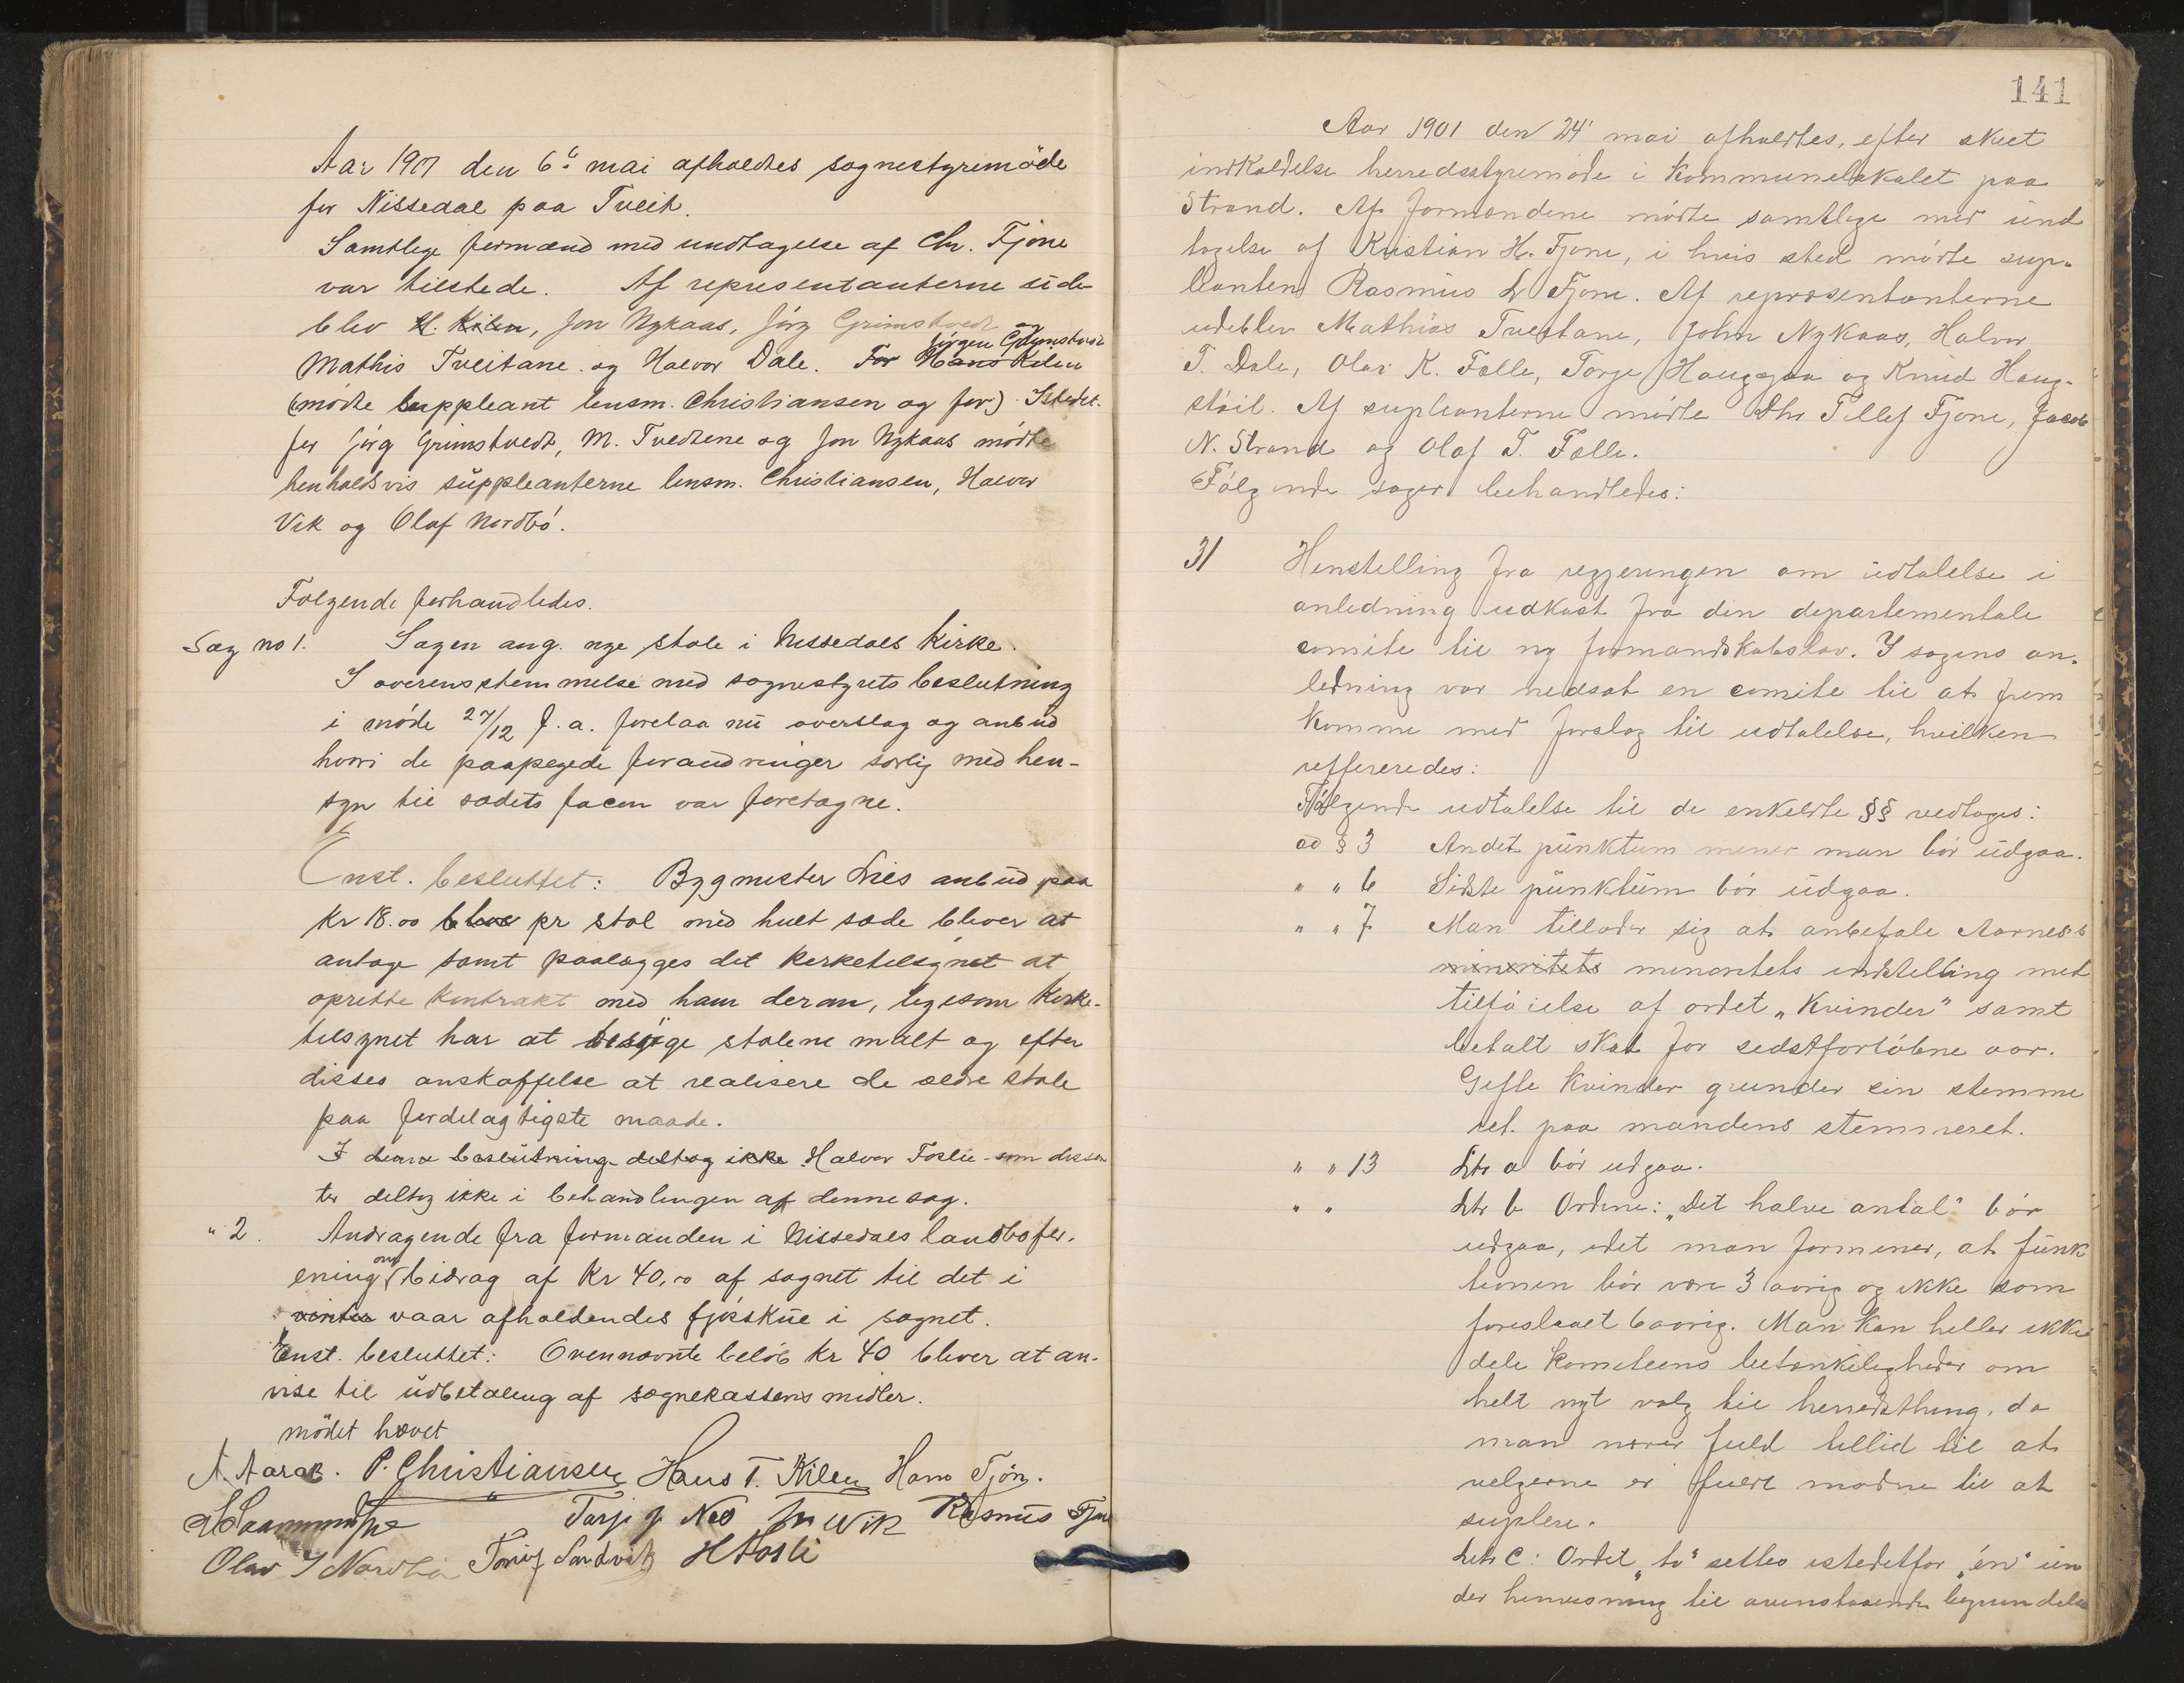 Aar 1901 den 6' mai afholdtes sognestyremöde
for Nissedal paa Tveit.
Samtlige formænd med undtagelse af Chr. Tjöne
var tilstede. Af representanterne ude
blev H. Kilen, Jon Nykaas, Jörg Grimstvedt
Jörgen Grimstvedt
Mathis Tveitane og Halvor Dale. For Hans Kilen
(mödte suppleant lensm. Christiansen og for) Istedet
for Jörg Grimstvedt, M. Tvedtene og Jon Nykaas mödte
henholdsvis suppleanterne lensm. Christiansen, Halvor
Vik og Olaf Nordbö.
Følgende forhandledes.
Sag no 1. Sagen ang. nye stole i Nissedals kirke.
I overensstemmelse med sognestyrets beslutning
i möde 27/12 f. a. forelaa nu overslag og anbud
hvori de paapegede forandringer særlig med hen-
syn til sædets facon var foretagne.
Enst. besluttet: Bygmester Lies anbud paa
Kr 18.00 blive pr stol med hult sæde bliver at
antage samt paalægges det kirketilsynet at
oprette kontrakt med ham derom, ligesom kirke-
tilsynet har at besørge stolene malt og efter
disses anskaffelse at realisere de ældre stole
paa fordelagtigste maade.
I denne beslutning deltog ikke Halvor Foslie som dessen
ter deltog ikke i behandlingen af denne sag.
" 2. Andragende fra formanden i Nissedals landbofor-
ening om bidrag af Kr 40,00 af sognet til det i
vinter vaar afholdendes fjöskue i sognet.
Enst. besluttet: Ovennævnte belöb kr 40 bliver at an-
vise til udbetaling af sognekassens midler.
mödet hævet
A. Aarak. P. Christiansen Hans T. Kilen Hans Tjön.
Tarje J Næs Rasmus Fjone
Olav J Nordbö Sandvik H Fosli
141
Aar 1901 den 24' mai afholdtes, efter skeet
indkaldelse herredsstyremöde i kommunelokalet paa
Strand. Af formændene mödte samtlige med und
tagelse af Kristian H. Fjone, i hvis sted mödte sup-
leanten Rasmus L Fjone. Af repræsentanterne
udeblev Mathias Tveitane, John Nykaas, Halvor
T. Dale, Olav K. Fælle, Torge Hauggaa og Knud Haug-
stöil. Af supleanterne mödte Dhr Tellef Fjone, Jacob
N. Strand og Olaf T. Fælle.
Fölgende sager behandledes:
31 Henstelling fra regjeringen om udtalelse i
anledning udkast fra den departementale
comite til ny formandskabslov. I sagens an-
ledning var nedsat en comite til at frem
komme med forslag til udtalelse, hvilken
reffereredes:
Fölgende udtalelse til de enkeldte §§ vedtoges:
ad § 3 Andet punktum mener man bör udgaa.
" " 6 Sidste punktum bör udgaa.
" " 7 Man tillader sig at anbefale Aarnes's
minoritets minoritets indstelling med
tilföielse af ordet "Kvinder" samt
betalt skat for sidstforlöbne aar.
Gifte kvinder grunder sin stemme
ret paa mandens stemmeret.
" " 13 Ltr a bör udgaa.
" " Ltr b Ordene: "Det halve antal" bör
udgaa, idet man formener, at funk
tionen bör være 3 aarig og ikke som
foreslaaet 6 aarig. Man kan heller ikke
dele komiteens betænkeligheder om
helt nyt valg til herredsthing, da
man nærer fuld tillid til at
velgerne er fuldt modne til at
suplere.
Litr c: Ordet "to" settes istedetfor "én" un
der henvisning til ovenstaaende begrundelse